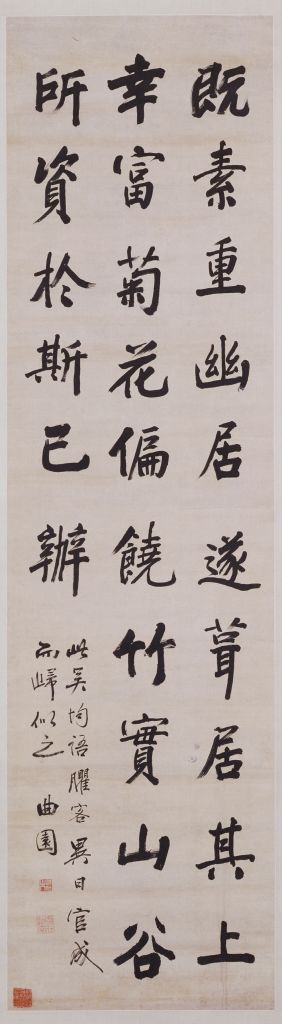 既素重幽居遂葺居其上
幸富菊花偏饒竹實山谷
所資於斯已辦
此吳均語臞客異日官成
而歸似之 曲園